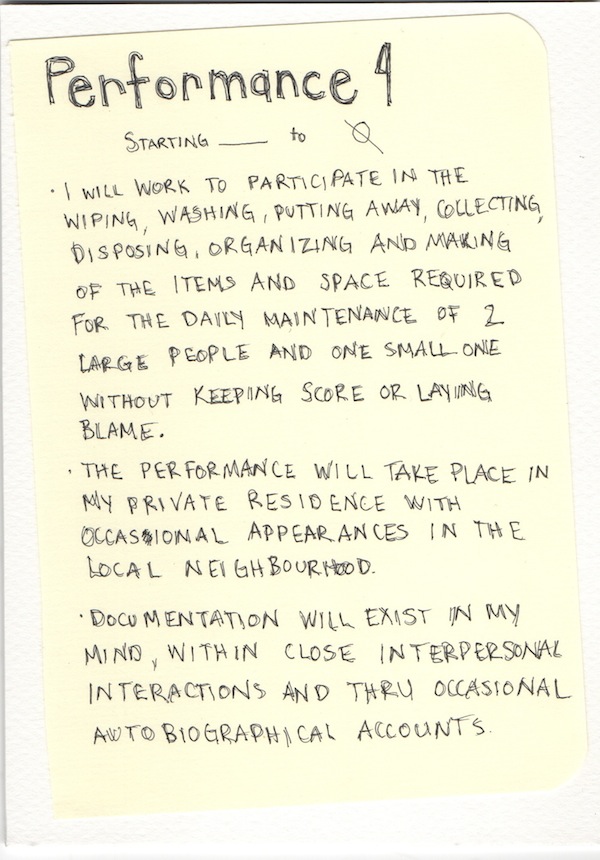 Performance 4
STARTING ____ to Ø
· I WILL WORK TO PARTICIPATE IN THE
WIPING, WASHING, PUTTING AWAY, COLLECTING,
DISPOSING, ORGANIZING AND MAKING
OF THE ITEMS AND SPACE REQUIRED
FOR THE DAILY MAINTENANCE OF 2
LARGE PEOPLE AND ONE SMALL ONE
WITHOUT KEEPING SCORE OR LAYING
BLAME.
· THE PERFORMANCE WILL TAKE PLACE IN
MY PRIVATE RESIDENCE WITH
OCCASIONAL APPEARANCES IN THE
LOCAL NEIGHBOURHOOD.
· DOCUMENTATION WILL EXIST IN MY
MIND, WITHIN CLOSE INTERPERSONAL
INTERACTIONS AND THRU OCCASIONAL
AUTOBIOGRAPHICAL ACCOUNTS.